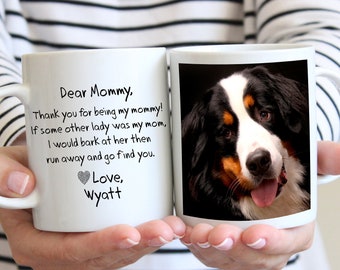 Dear Mommy,
Thank you for being my mommy!
If some other lady was my mom,
I would bark at her then
run away and go find you.
Love,
Wyatt